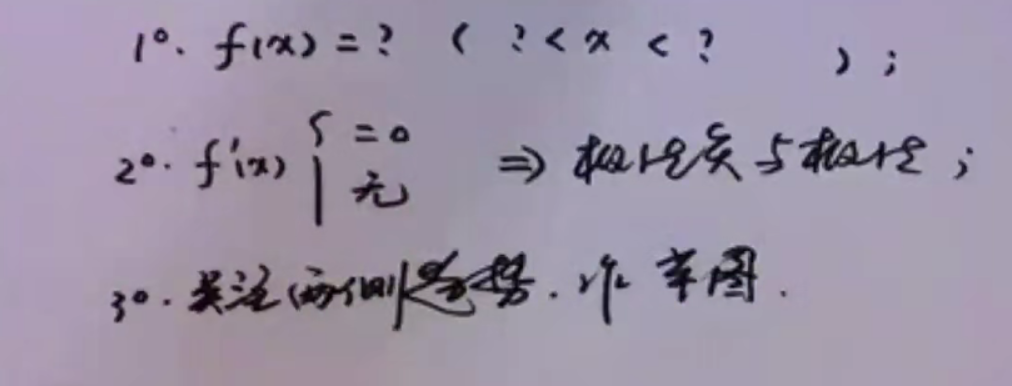 1°. f(x) = ? ( ? < x < ? );
2°. f'(x) { = 0 无 ⇒ 极值点与极值;
3°. 关注两侧趋势. 作草图.